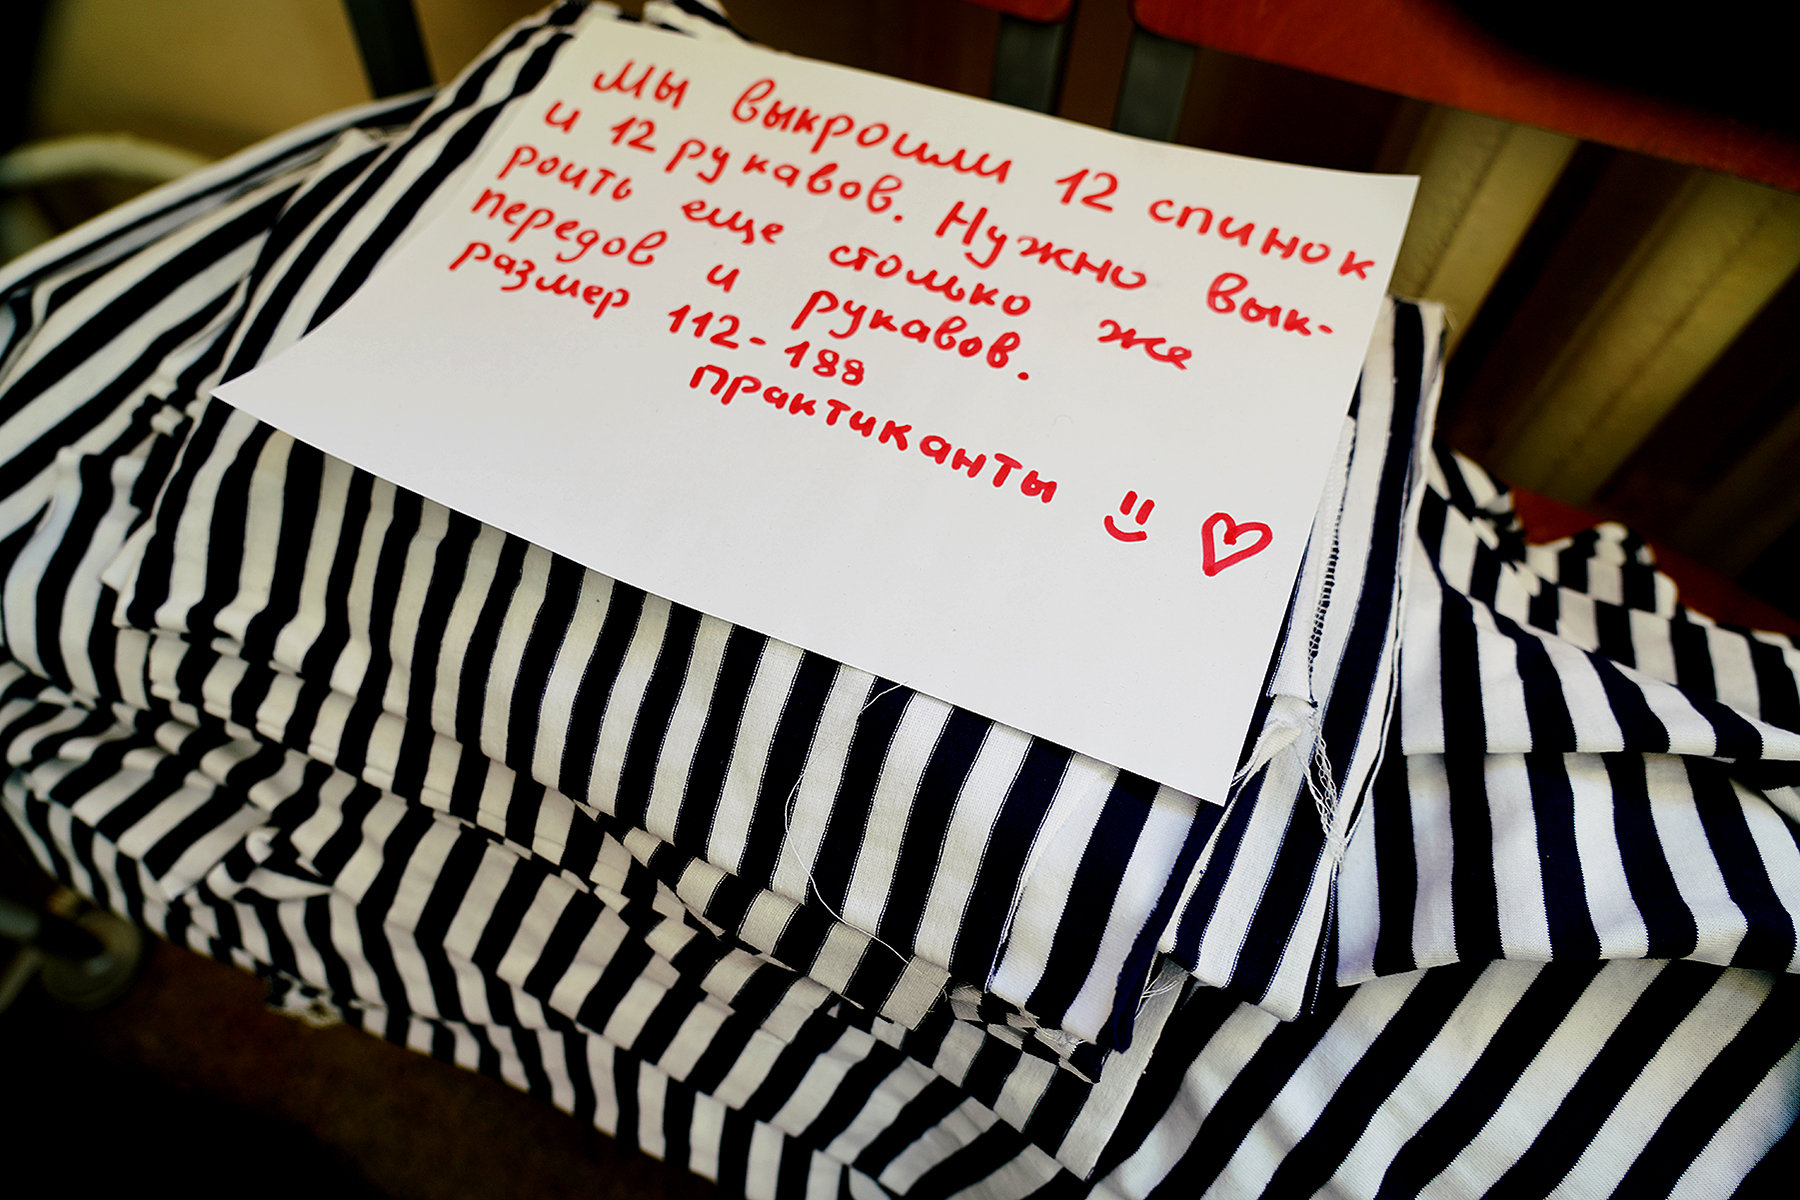 Мы выкроили 12 спинок
и 12 рукавов. Нужно вык-
роить еще столько же
передов и рукавов.
размер 112-188
практиканты